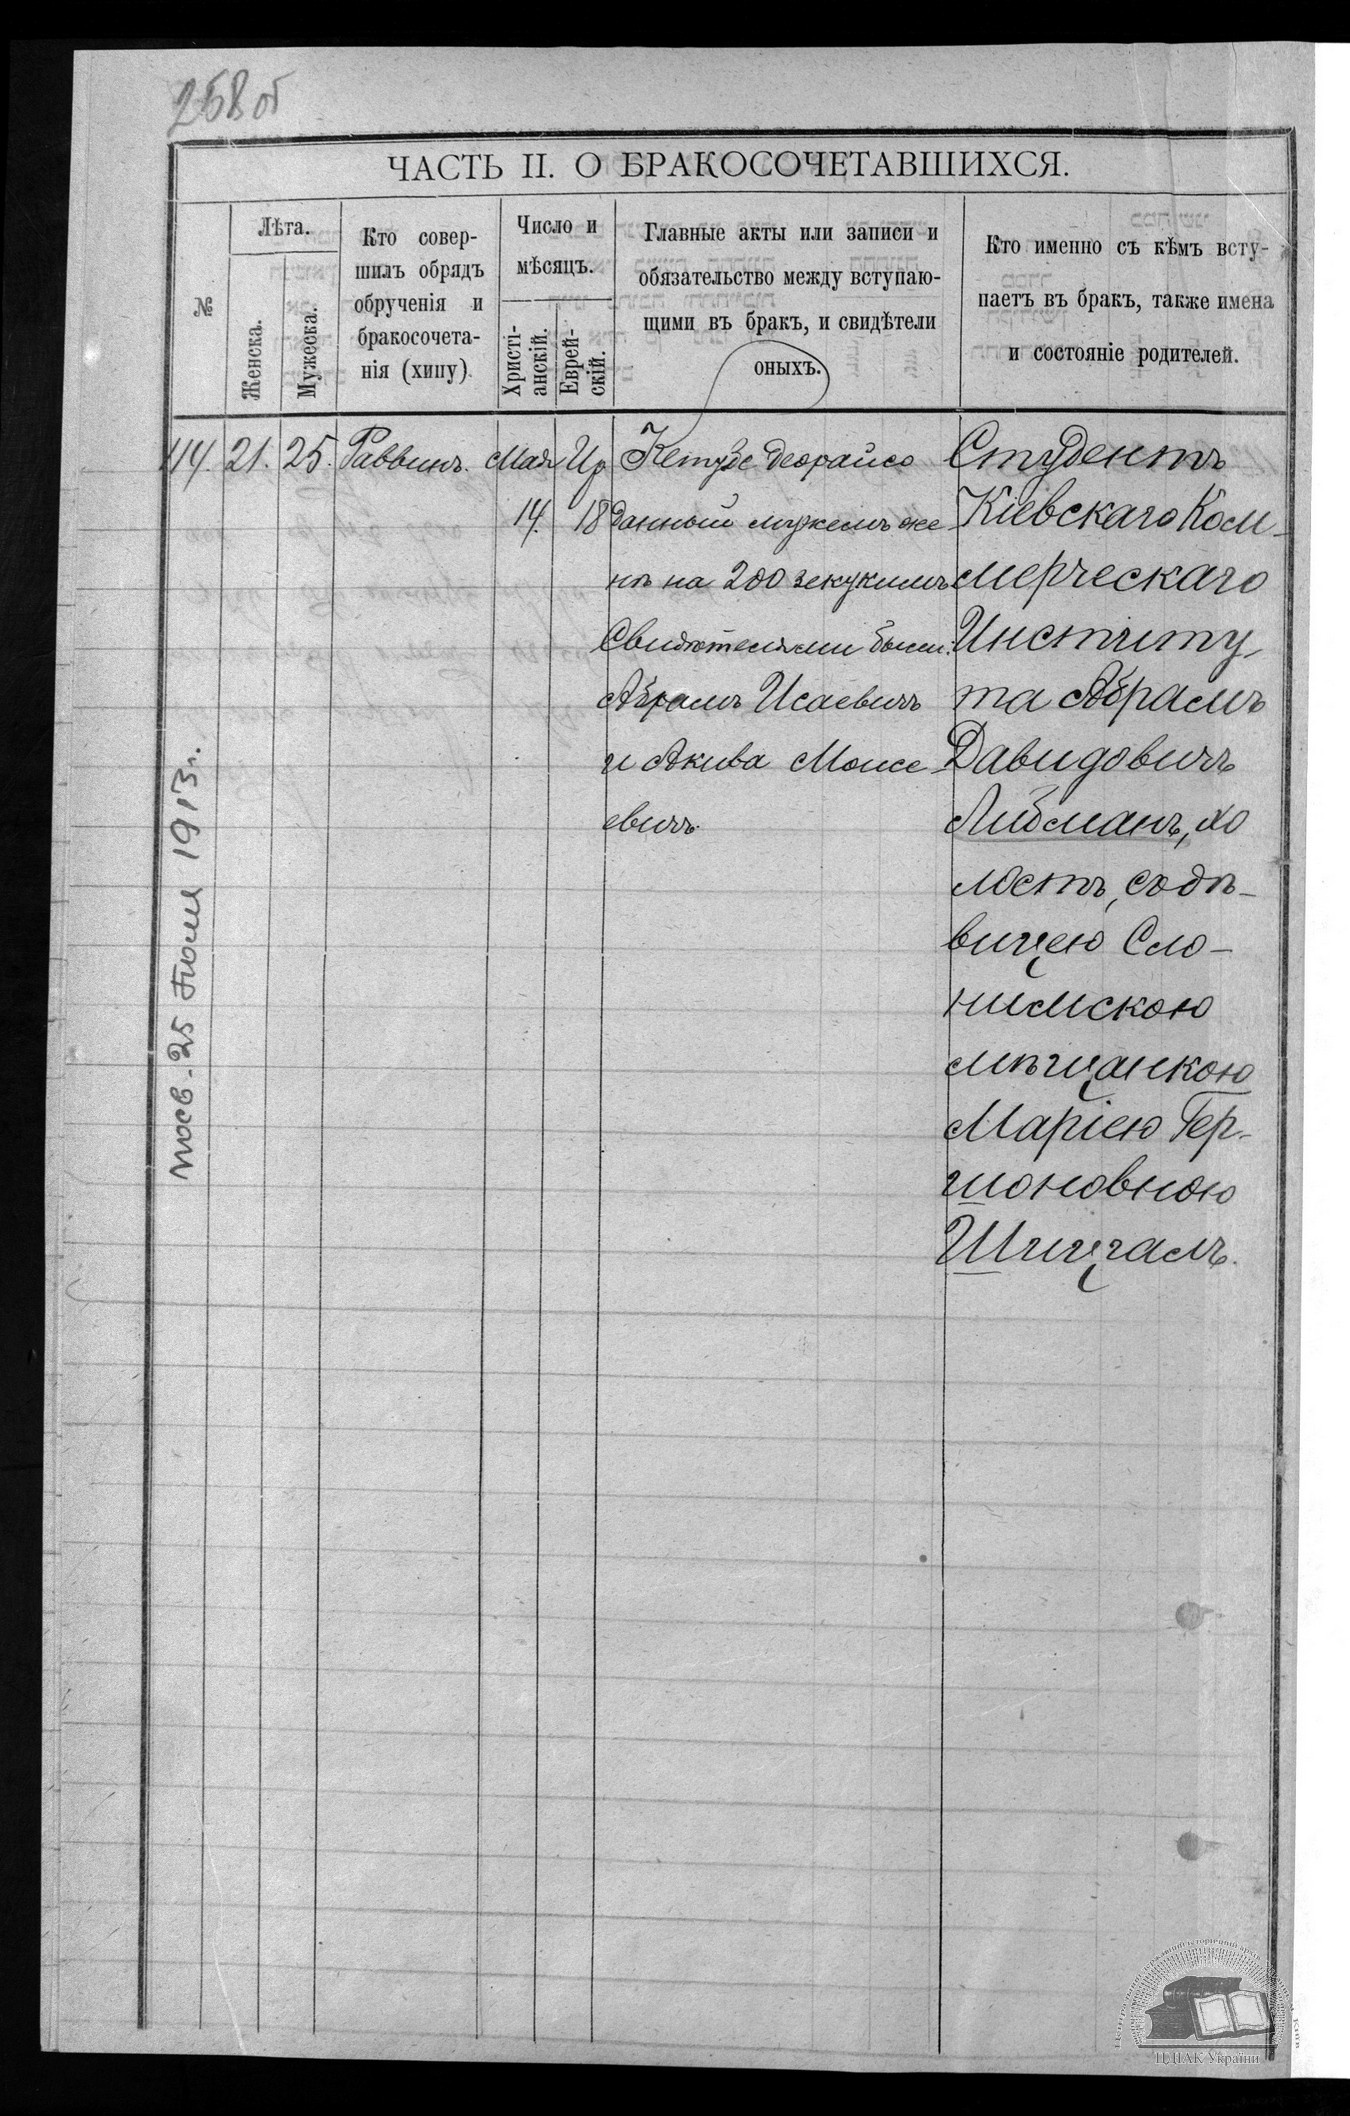 258 об
ЧАСТЬ II. О БРАКОСОЧЕТАВШИХСЯ.
№
Лѣта.
Женска.
Мужеска.
Кто совер-
шилъ обрядъ
обрученія и
бракосочета-
нія (хипу).
Число и
мѣсяцъ.
Христі-
анскій.
Еврей-
скій.
Главные акты или записи и
обязательство между вступаю-
щими въ бракъ, и свидѣтели
оныхъ.
Кто именно съ кѣмъ всту-
паетъ въ бракъ, также имена
и состояніе родителей.
114. 21. 25. Раввинъ. Мая Ир
14. 18
Кетубе деорайсо
данный мужемъ же
нѣ на 200 зекукимъ
Свидѣтелями были:
Абрамъ Исаевичъ
и Акива Моисе
евичъ.
Студентъ
Кіевскаго Ком-
мерческаго
Институ-
та Абрамъ
Давидовичъ
Либманъ, хо
лостъ, съ дѣ-
вицею Сло-
нимскою
мѣщанкою
Маріею Гер-
шоновною
Шищгалъ.
25 Іюля 1913 г.
ЦДІАК України